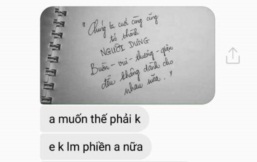 " Chúng ta cuối cùng cũng
trở thành
NGƯỜI DƯNG
Buồn - vui - thương - giận
đều không dành cho
nhau nữa. "
a muốn thế phải k
e k lm phiền a nữa